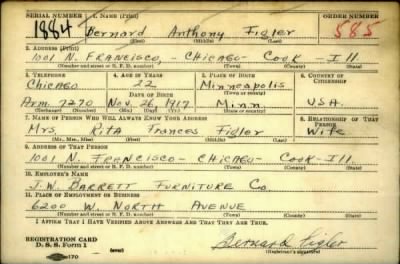 SERIAL NUMBER 1. NAME (Print) ORDER NUMBER
1884 Bernard Anthony Figler 585
(First) (Middle) (Last)
2. ADDRESS (Print)
1001 N. FRANCISCO, - CHICAGO - COOK - Ill
(Number and street or R. F. D. number) (Town) (County) (State)
3. TELEPHONE 4. AGE IN YEARS 5. PLACE OF BIRTH 6. COUNTRY OF CITIZENSHIP
Chicago 22 Minneapolis
DATE OF BIRTH (Town or county)
Arm. 7270 Nov. 26, 1917 Minn. USA.
(Exchange) (Number) (Mo.) (Day) (Yr.) (State or country)
7. NAME OF PERSON WHO WILL ALWAYS KNOW YOUR ADDRESS 8. RELATIONSHIP OF THAT PERSON
Mrs. Rita Frances Figler Wife
(Mr., Mrs., Miss) (First) (Middle) (Last)
9. ADDRESS OF THAT PERSON
1001 N. FRANCISCO - CHICAGO - COOK - Ill.
(Number and street or R. F. D. number) (Town) (County) (State)
10. EMPLOYER'S NAME
J. W. BARRETT FURNITURE Co.
11. PLACE OF EMPLOYMENT OR BUSINESS
6200 W. NORTH AVENUE
(Number and street or R. F. D. number) (Town) (County) (State)
I AFFIRM THAT I HAVE VERIFIED ABOVE ANSWERS AND THAT THEY ARE TRUE.
REGISTRATION CARD
D. S. S. Form 1 Bernard Figler
(over) (Registrant's signature)